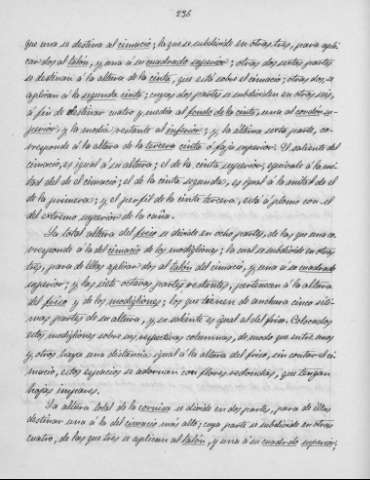 236
que una se destina al cimacio; la que se subdivide en otras tres, para apli-
car dos al talón, y una á su cuadrado superior; otras dos sextas partes
se destinan á la altura de la cinta, que está sobre el cimacio; otras dos, se
aplican á la segunda cinta; cuyas dos partes se subdividen en otras seis,
á fin de destinar cuatro y media al fondo de la cinta, una al cordón su-
perior y la media restante al inferior; y la última sexta parte, co-
rresponde á la altura de la tercera cinta ó faja superior. El saliente del
cimacio, es igual á su altura; el de la cinta superior, equivale á la mi-
tad del de el cimacio; el de la cinta segunda, es igual á la mitad de el
de la primera; y el perfil de la cinta tercera, está á plomo con el
del extremo superior de la caña.
La total altura del friso se divide en ocho partes, de las que una co-
rresponde á la del cimacio de los modillones; la cual se subdivide en otras
tres, para de ellas aplicar dos al talón del cimacio, y una á su cuadrado
superior; y las siete octavas partes restantes, pertenecen á la altura
del friso y de los modillones; los que tienen de anchura cinco séti-
mas partes de su altura, y su saliente es igual al del friso. Colocados
estos modillones sobre sus respectivas columnas, de modo que entre unos
y otros haya una distancia igual á la altura del friso, sin contar el ci-
macio, estos espacios se adornan con flores redondas, que tengan
hojas impares.
La altura total de la cornisa se divide en dos partes, para de ellas
destinar una á la del cimacio más alto; cuya parte se subdivide en otras
cuatro, de las que tres se aplican al talón, y una á su cuadrado superior;